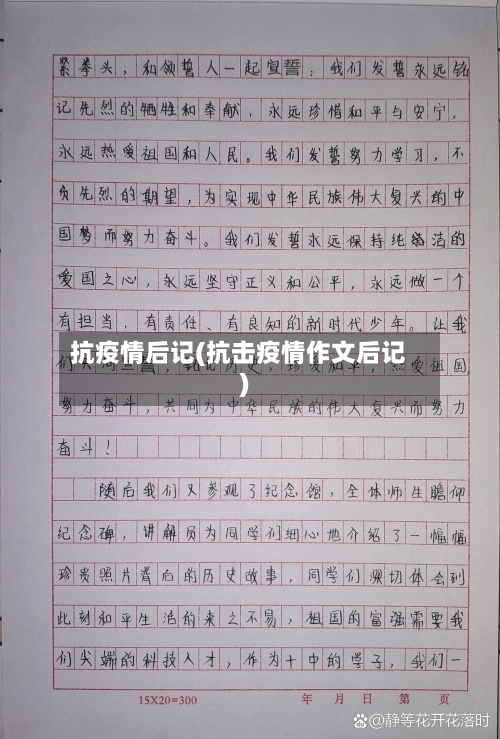 紧拳头，和领誓人一起宣誓：我们发誓永远铭
记先烈的牺牲和奉献，永远珍惜和平与安宁，
永远热爱祖国和人民。我们发誓努力学习，不
负先烈的期望，为实现中华民族伟大复兴的中
国梦而努力奋斗。我们发誓永远保持纯洁的
爱国之心，永远坚守正义和公平，永远做一个
有担当，有责任、有良知的新时代少年。让我
抗疫情后记(抗击疫情作文后记
)
们 爱祖国
努力奋斗，共同为中华民族的伟大复兴而努力
奋斗！
随后我们又参观了纪念馆，全体师生瞻仰
纪念碑，讲解员为同学们细心地介绍了一幅幅
珍贵照片背后的历史故事，同学们深切体会到
此刻和平生活的来之不易，祖国的富强需要我
们尖端的科技人才，作为十中的学子，我们一
15X20=300 年 月 日 第 页
@静等花开花落时